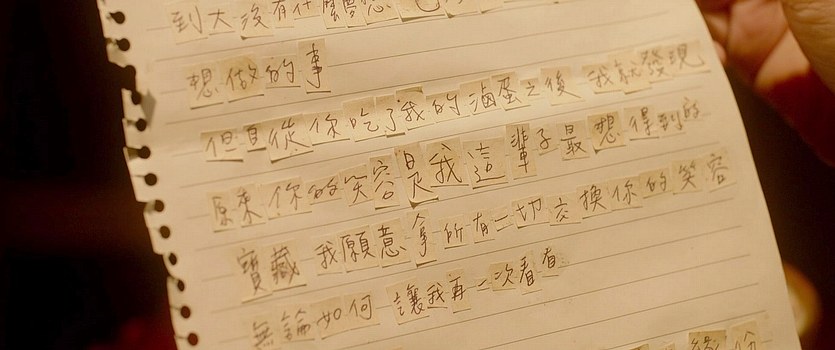 到大沒有什麼
想做的事
但自從你吃了我的滷蛋之後 我就發現
原來你的笑容是我這輩子最想得到的
寶藏 我願意拿所有一切交換你的笑容
無論如何 讓我再一次看看
緣份